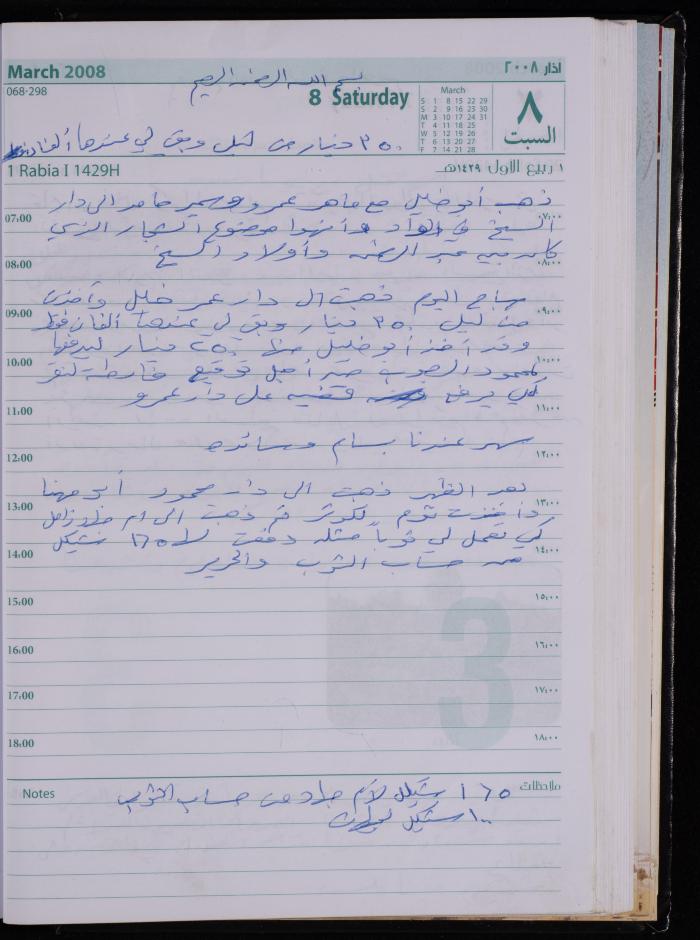 March 2008
آذار ٢٠٠٨
068-298
بسم الله الرحمن الرحيم
8 Saturday
March
S 1 8 15 22 29
S 2 9 16 23 30
M 3 10 17 24 31
T 4 11 18 25
W 5 12 19 26
T 6 13 20 27
F 7 14 21 28
٨
السبت
٣٥٠ دينار من ليلى وبقي لي عندها ألفا دينار
1 Rabia I 1429H
١ ربيع الاول ١٤٢٩هـ
ذهب أبو خليل مع ماهر عمرو وسمير حامد الى دار
07:00 ٠٧:٠٠
الشيخ في الواد وأنهوا موضوع الشجار الذي
كان بين عبد الرحمن وأولاد الشيخ
08:00 ٠٨:٠٠
صباح اليوم ذهبت الى دار عمر خليل وأخذت
09:00 ٠٩:٠٠
من ليلى ٣٥٠ دينار وبقي لي عندها ألفان فقط
وقد أخذ أبو خليل منها ٢٥٠ دينار ليدفعها
10:00 ١٠:٠٠
لمحمود من أجل توقيع
كي يرفع قضيه على دار عمرو
11:00 ١١:٠٠
سهر عندنا بسام وسائده
12:00 ١٢:٠٠
بعد الظهر ذهبت الى دار محمود أبو مهنا
13:00 ١٣:٠٠
وأخذت ثوم ثم ذهبت الى ام
كي تعمل لي ثوباً مثله دفعت لها ١٦٥ شيكل
14:00 ١٤:٠٠
من حساب الثوب والحرير
15:00 ١٥:٠٠
3
16:00 ١٦:٠٠
17:00 ١٧:٠٠
18:00 ١٨:٠٠
Notes
ملاحظات
١٦٥ شيكل لأم جلاد من حساب الثوب
١٠٠ شيكل